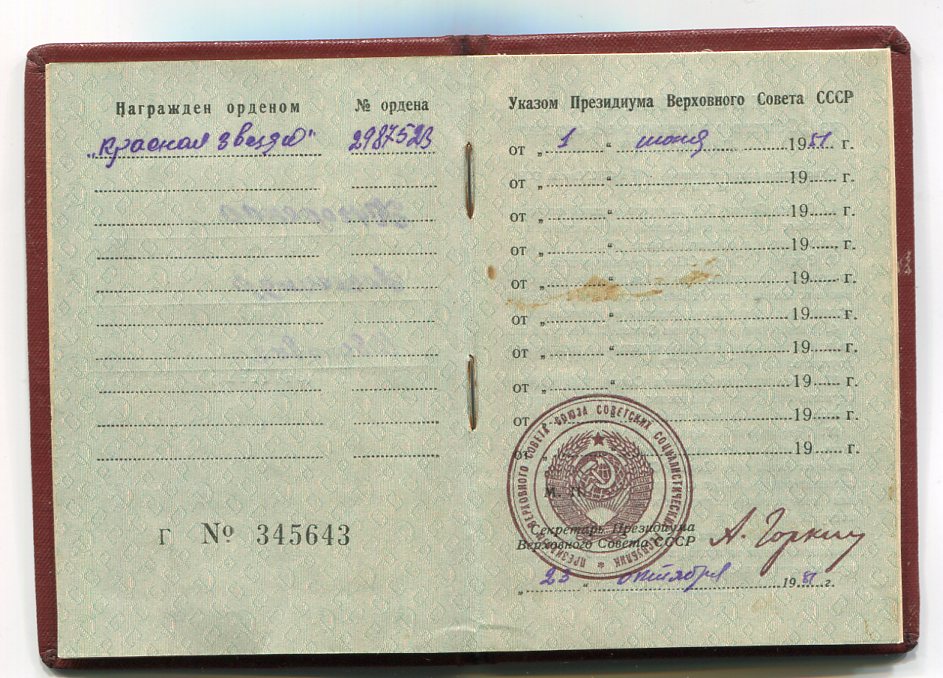 Награжден орденом № ордена
„Красная Звезда" 2987523
Г № 345643
Указом Президиума Верховного Совета СССР
от „ 1 “ июня 1951 г.
от „ “ 19 г.
от „ “ 19 г.
от „ “ 19 г.
от „ “ 19 г.
от „ “ 19 г.
от „ “ 19 г.
от „ “ 19 г.
от „ “ 19 г.
от „ “ 19 г.
ПРЕЗИДИУМ ВЕРХОВНОГО СОВЕТА СОЮЗА СОВЕТСКИХ СОЦИАЛИСТИЧЕСКИХ РЕСПУБЛИК
М. П.
Секретарь Президиума
Верховного Совета СССР
А. Горкин
„ 23 “ октября 1951 г.